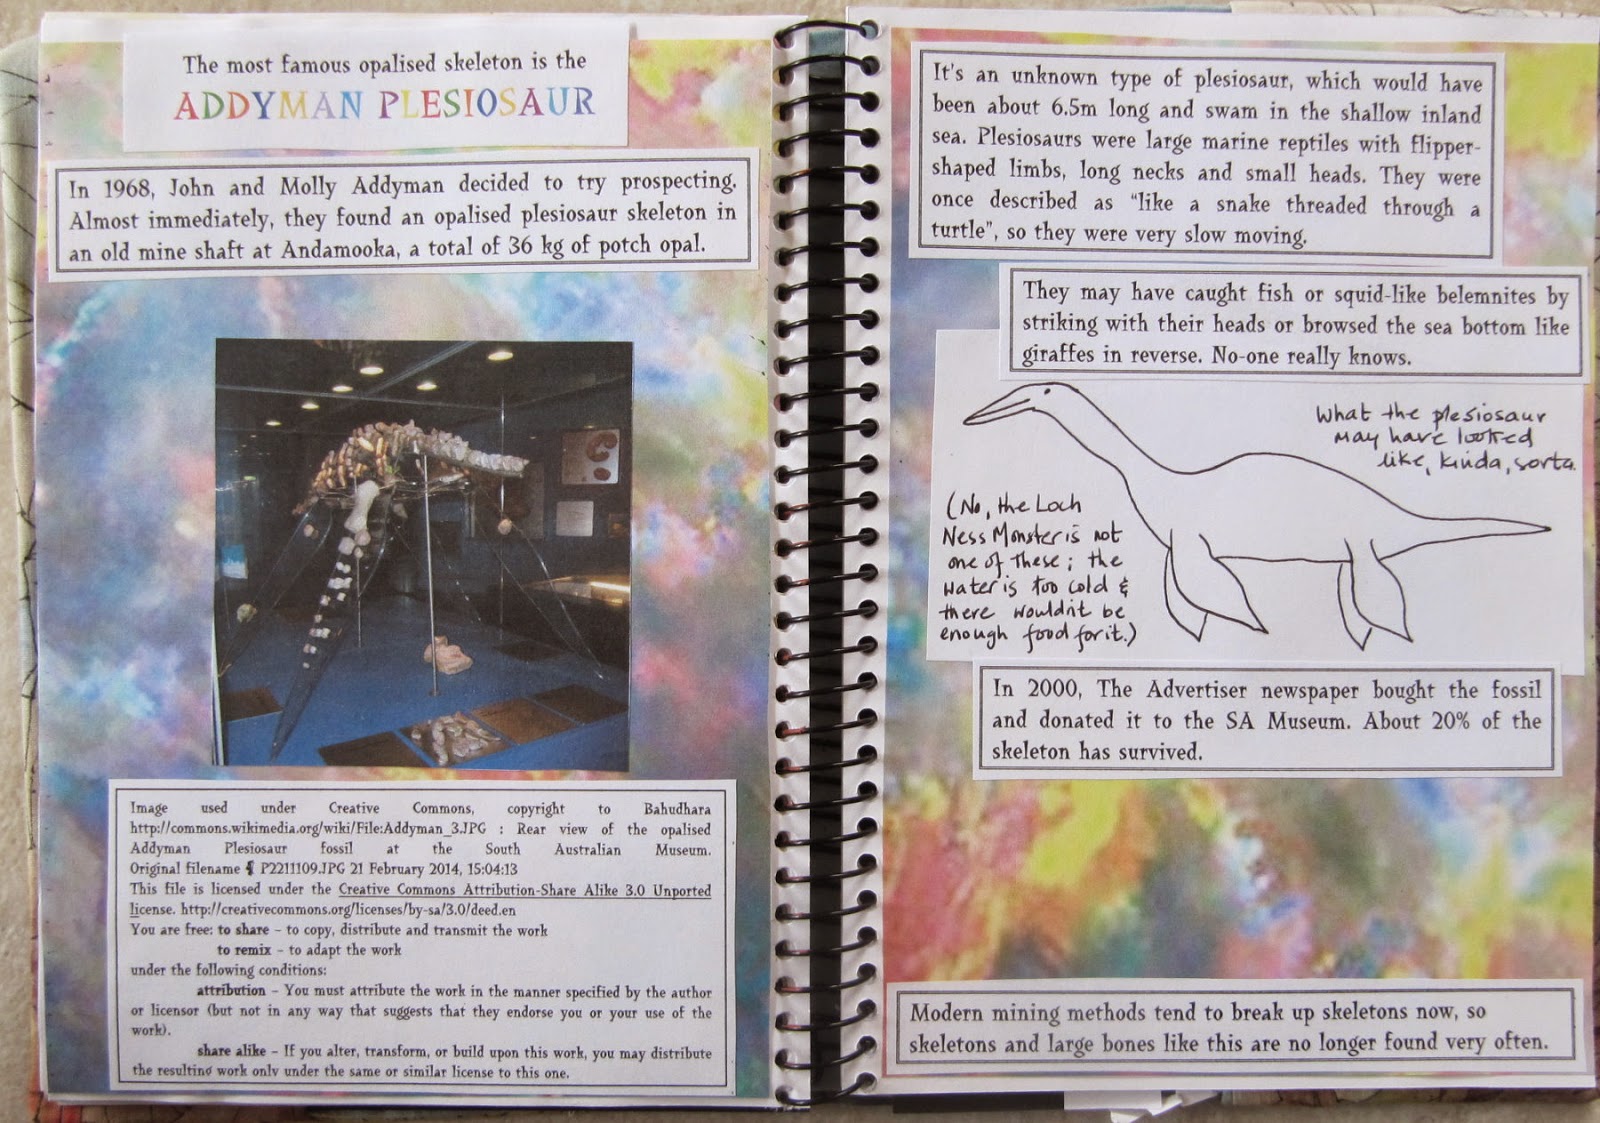 The most famous opalised skeleton is the
ADDYMAN PLESIOSAUR
In 1968, John and Molly Addyman decided to try prospecting.
Almost immediately, they found an opalised plesiosaur skeleton in
an old mine shaft at Andamooka, a total of 36 kg of potch opal.
Image used under Creative Commons, copyright to Bahudhara
http://commons.wikimedia.org/wiki/File:Addyman_3.JPG : Rear view of the opalised
Addyman Plesiosaur fossil at the South Australian Museum.
Original filename ¶ P2211109.JPG 21 February 2014, 15:04:13
This file is licensed under the Creative Commons Attribution-Share Alike 3.0 Unported
license. http://creativecommons.org/licenses/by-sa/3.0/deed.en
You are free: to share – to copy, distribute and transmit the work
to remix – to adapt the work
under the following conditions:
attribution – You must attribute the work in the manner specified by the author
or licensor (but not in any way that suggests that they endorse you or your use of the
work).
share alike – If you alter, transform, or build upon this work, you may distribute
the resulting work only under the same or similar license to this one.
It's an unknown type of plesiosaur, which would have
been about 6.5m long and swam in the shallow inland
sea. Plesiosaurs were large marine reptiles with flipper-
shaped limbs, long necks and small heads. They were
once described as "like a snake threaded through a
turtle", so they were very slow moving.
They may have caught fish or squid-like belemnites by
striking with their heads or browsed the sea bottom like
giraffes in reverse. No-one really knows.
What the plesiosaur
may have looked
like, kinda, sorta.
(No, the Loch
Ness Monster is not
one of these; the
water is too cold &
there wouldn't be
enough food for it.)
In 2000, The Advertiser newspaper bought the fossil
and donated it to the SA Museum. About 20% of the
skeleton has survived.
Modern mining methods tend to break up skeletons now, so
skeletons and large bones like this are no longer found very often.